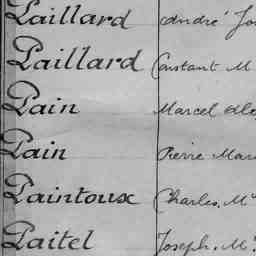 Paillard André Jos
Paillard Constant M
Pain Marcel Ale
Pain Pierre Mari
Paintoux Charles. M
Paitel Joseph. M.